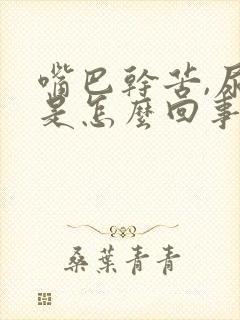 嘴巴幹苦,尿
是怎麼回事
桑葉青青